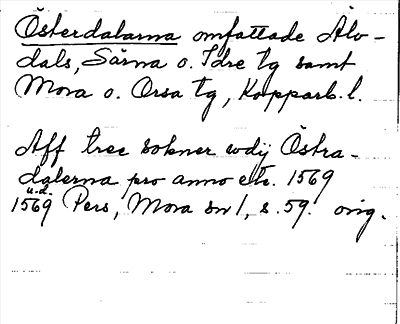 Österdalarna omfattade Älv-
dals, Särna o. Idre tg samt
Mora o. Orsa tg, Kopparb. l.
Aff tree sokner wdij Östra-
dalerna pro anno etc. 1569
u.d.
1569 Pers, Mora sn 1, s. 59. orig.